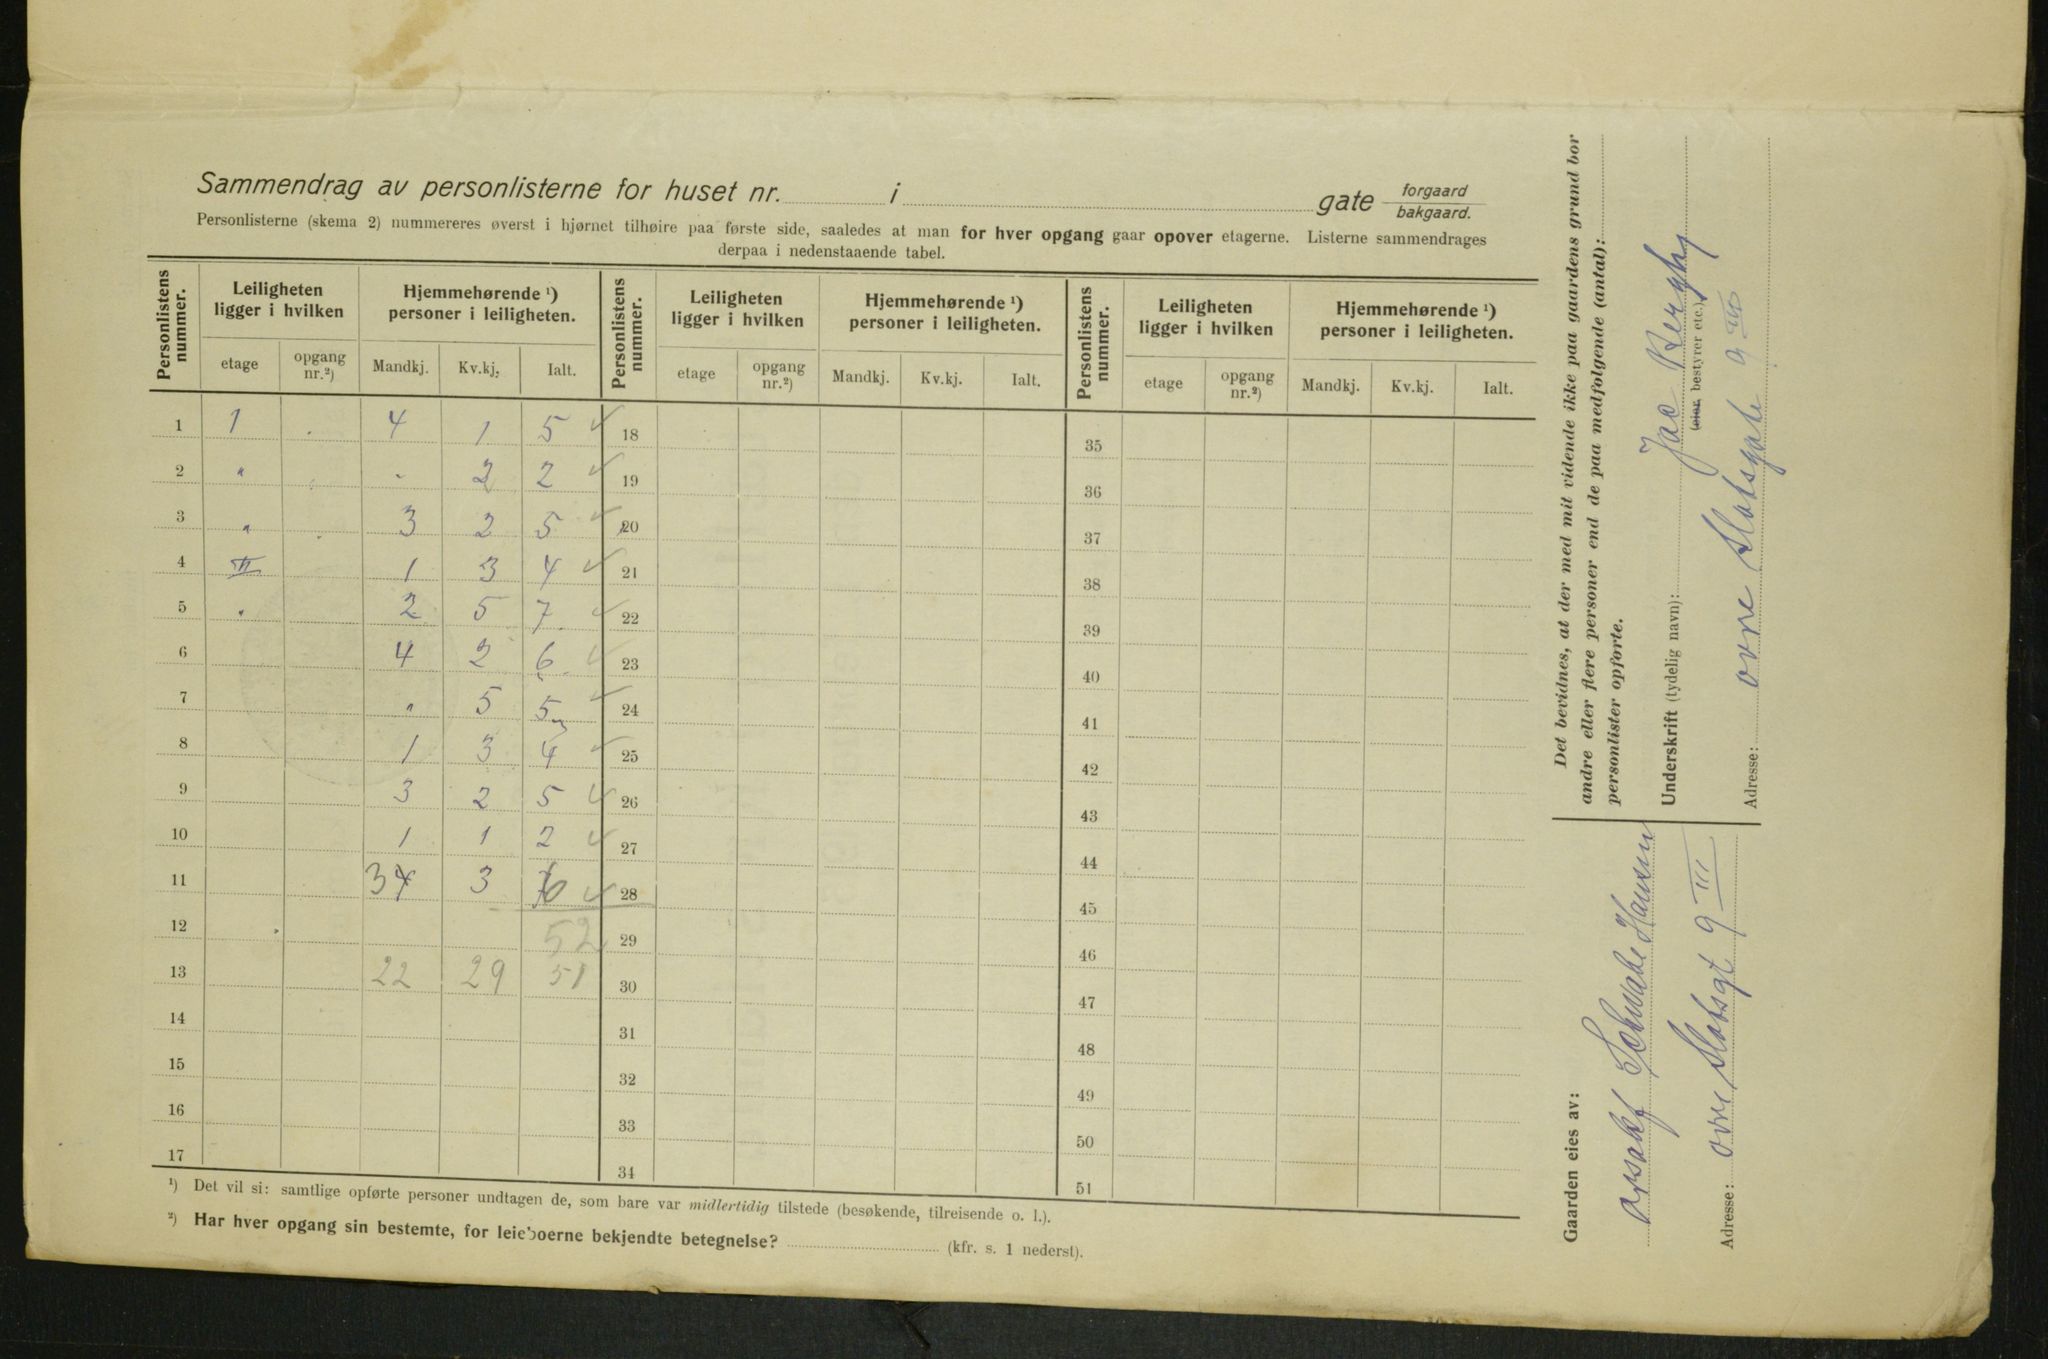 Sammendrag av personlisterne for huset nr. i gate forgaard bakgaard.
Personlisterne (skema 2) nummereres øverst i hjørnet tilhøire paa første side, saaledes at man for hver opgang gaar opover etagerne. Listerne sammendrages
derpaa i nedenstaaende tabel.
Personlistens nummer. Leiligheten ligger i hvilken Hjemmehørende ¹) personer i leiligheten. Personlistens nummer. Leiligheten ligger i hvilken Hjemmehørende ¹) personer i leiligheten. Personlistens nummer. Leiligheten ligger i hvilken Hjemmehørende ¹) personer i leiligheten.
etage opgang nr.²) Mandkj. Kv.kj. Ialt. etage opgang nr.²) Mandkj. Kv.kj. Ialt. etage opgang nr.²) Mandkj. Kv.kj. Ialt.
1 1 4 1 5 ✓ 18 35
2 " - 2 2 ✓ 19 36
3 " 3 2 5 ✓ 20 37
4 II 1 3 4 ✓ 21 38
5 " 2 5 7 ✓ 22 39
6 4 2 6 ✓ 23 40
7 " 5 5 ✓ 24 41
8 1 3 4 ✓ 25 42
9 3 2 5 ✓ 26 43
10 1 1 2 ✓ 27 44
11 3 4 3 6 ✓ 28 45
12 52 29 46
13 22 29 51 30 47
14 31 48
15 32 49
16 33 50
17 34 51
¹) Det vil si: samtlige opførte personer undtagen de, som bare var midlertidig tilstede (besøkende, tilreisende o. l.).
²) Har hver opgang sin bestemte, for leieboerne bekjendte betegnelse? (kfr. s. 1 nederst).
Det bevidnes, at der med mit vidende ikke paa gaardens grund bor
andre eller flere personer end de paa medfølgende (antal):
personlister opførte.
Underskrift (tydelig navn): Jac Bergby
(eier, bestyrer etc.)
Adresse: øvre Slotsgate 9 III
Gaarden eies av:
Schwabe Hansen
Adresse: øvre Slotsgt 9 III